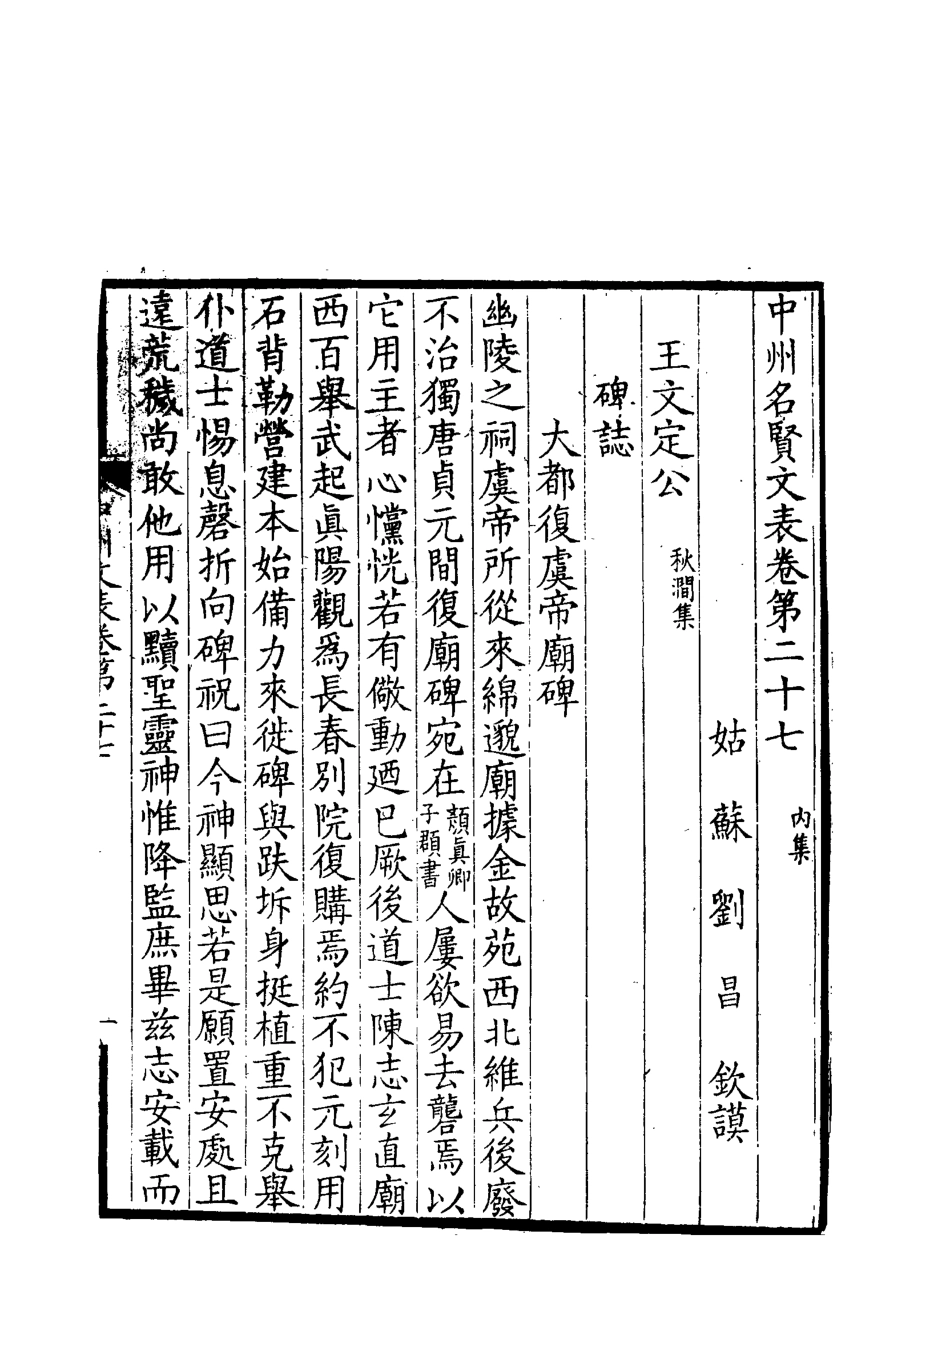 中州名賢文表卷第二十七 內集
姑蘇劉昌欽謨
王文定公 秋澗集
碑誌
大都復虞帝廟碑
幽陵之祠虞帝所從來綿邈廟據金故苑西北維兵後廢
不治獨唐貞元間復廟碑宛在顏眞卿子頵書人屢欲易去礱焉以
它用主者心戃恍若有儆動廼已厥後道士陳志玄直廟
西百舉武起眞陽觀爲長春別院復購焉約不犯元刻用
石背勒營建本始備力來徙碑與趺坼身挺植重不克舉
仆道士惕息磬折向碑祝曰今神顯思若是願置安處且
遠荒穢尚敢他用以黷聖靈神惟降監庶畢兹志安載而
中州文表卷第二十七
一